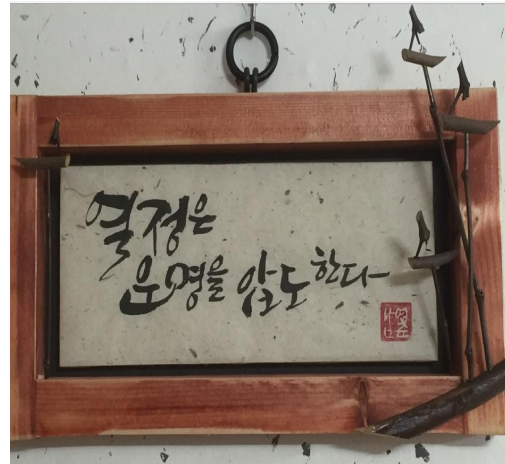 열정은
운명을 압도한다